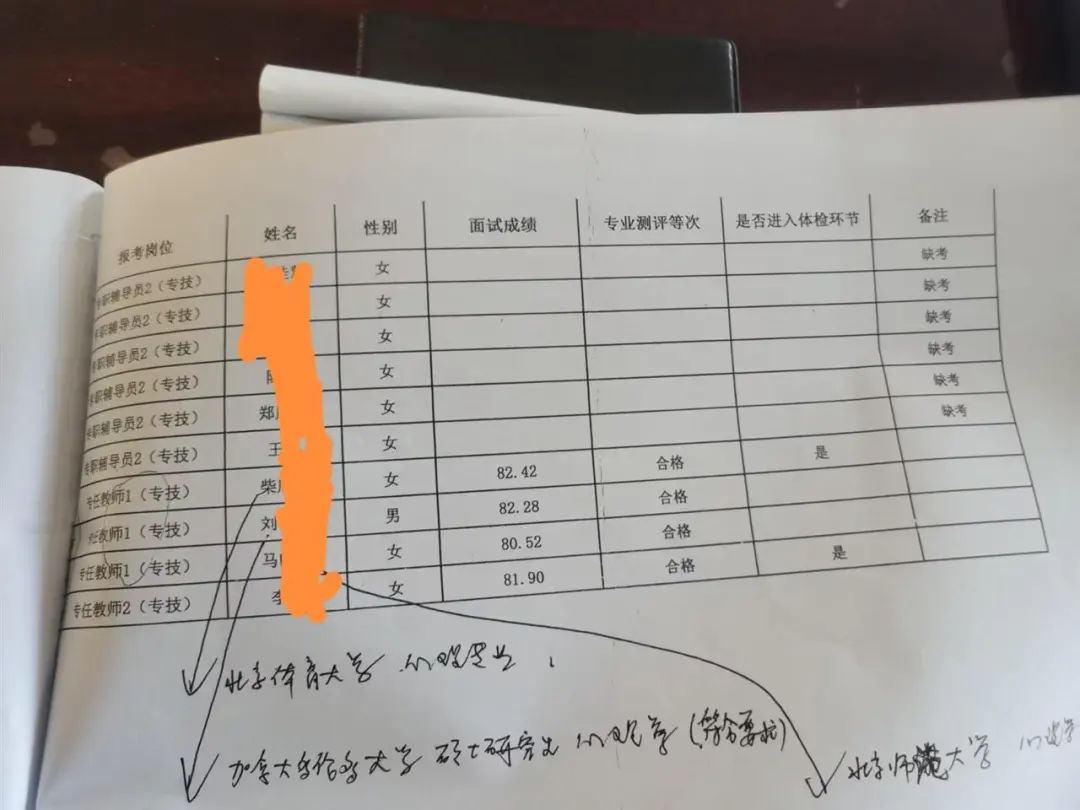 报考岗位 姓名 性别 面试成绩 专业测评等次 是否进入体检环节 备注
专职辅导员2（专技） 女 缺考
专职辅导员2（专技） 女 缺考
专职辅导员2（专技） 女 缺考
专职辅导员2（专技） 女 缺考
专职辅导员2（专技） 郑 女 缺考
专职辅导员2（专技） 王 女 缺考
专任教师1（专技） 柴 女 82.42 合格 是
任教师1（专技） 刘 男 82.28 合格
专任教师1（专技） 马 女 80.52 合格
专任教师2（专技） 李 女 81.90 合格 是
北京体育大学
加拿大 大学 硕士研究生 心理学（符合要求）
北京师范大学 心理学